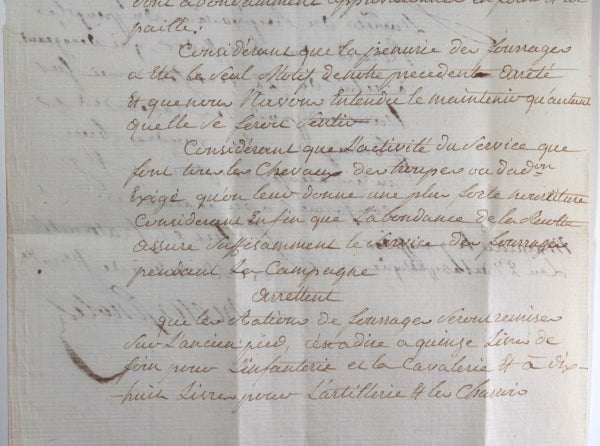 dont abondamment approvisionnés en foin et en
paille:
Considérant que la penurie des fourrages
a Eté le Seul Motif de notre precedente Arrêté
Et que nous N'avons Entendu le maintenir qu'autant
quelle Se feroit Sentir
Considérant que L'activité du Service que
font tous les Chevaux des troupes ou dadon
Exige qu'on leur donne une plus forte nourriture
Considérant Enfin que L'abondance de la Recolte
assure Suffisamment le Service des fourrages
pendant La Campagne
Arrettent
que les Rations de fourrages Seront remises
Sur L'ancien pied, cestadire a quinze Livres de
foin pour L'infanterie et la Cavalerie Et a dix-
-huit Livres pour L'artillerie Et les Charois